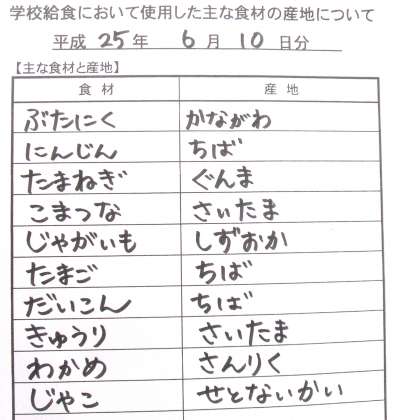 学校給食において使用した主な食材の産地について
平成 25 年 6 月 10 日分
【主な食材と産地】
食材 産地
ぶたにく かながわ
にんじん ちば
たまねぎ ぐんま
こまつな さいたま
じゃがいも しずおか
たまご ちば
だいこん ちば
きゅうり さいたま
わかめ さんりく
じゃこ せとないかい